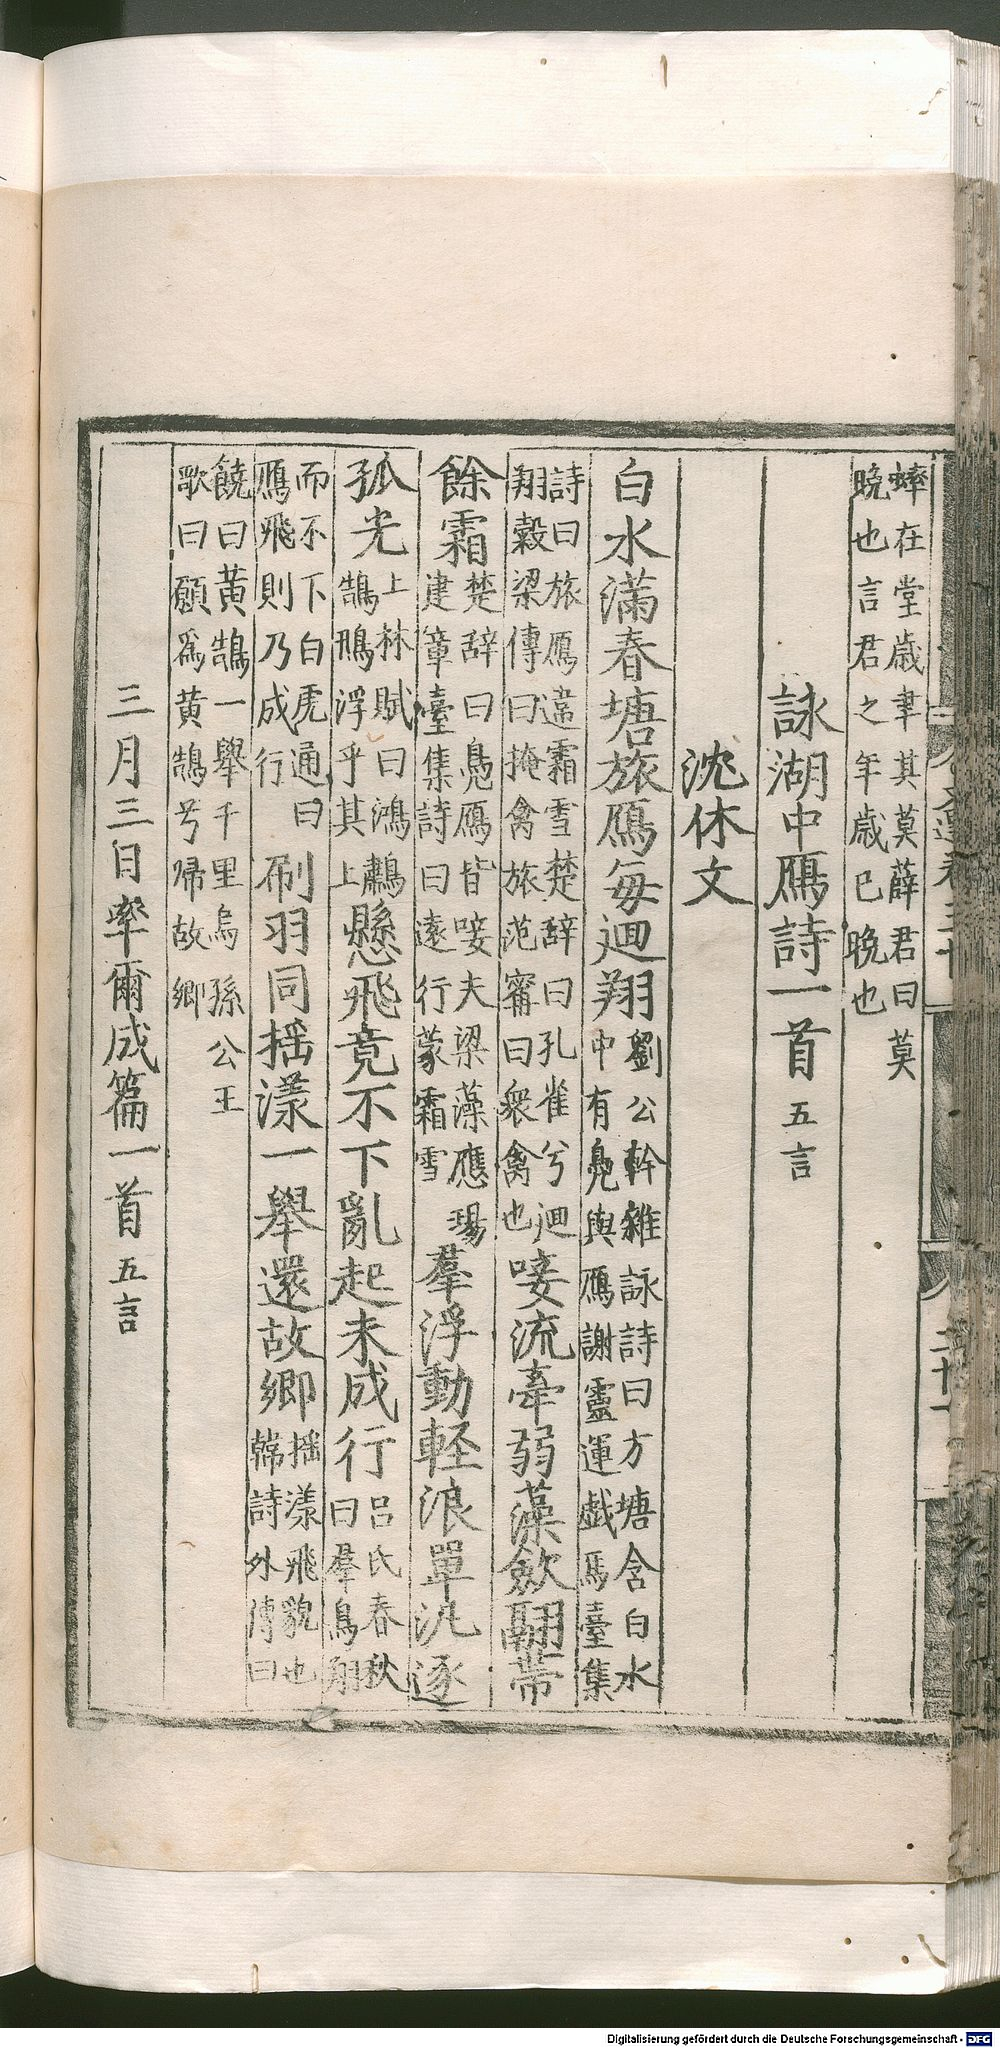 蟀在堂歲聿其莫薛君曰莫
晩也言君之年歲已晩也
詠湖中鴈詩一首 五言
沈休文
白水滿春塘旅鴈每迴翔
劉公幹雜詠詩曰方塘含白水
中有鳬與鴈謝靈運戯馬臺集
詩曰旅鴈違霜雪楚辭曰孔雀兮迴
翔穀梁傳曰掩禽旅范甯曰衆禽也
唼流牽弱藻斂翮帶
餘霜
楚辭曰鳬鴈皆唼夫梁藻應瑒
建章臺集詩曰遠行蒙霜雪
羣浮動輕浪單汎逐
孤光
上林賦曰鴻鷫
鵠鴇浮乎其上
懸飛竟不下亂起未成行
呂氏春秋
曰羣鳥翔
而不下白虎通曰
鴈飛則乃成行
刷羽同摇漾一舉還故鄉
摇漾飛貌也
韓詩外傳曰
饒曰黄鵠一舉千里烏孫公王
歌曰願爲黄鵠兮帰故鄉
三月三日率爾成篇一首 五言
二十一
Digitalisierung gefördert durch die Deutsche Forschungsgemeinschaft - DFG